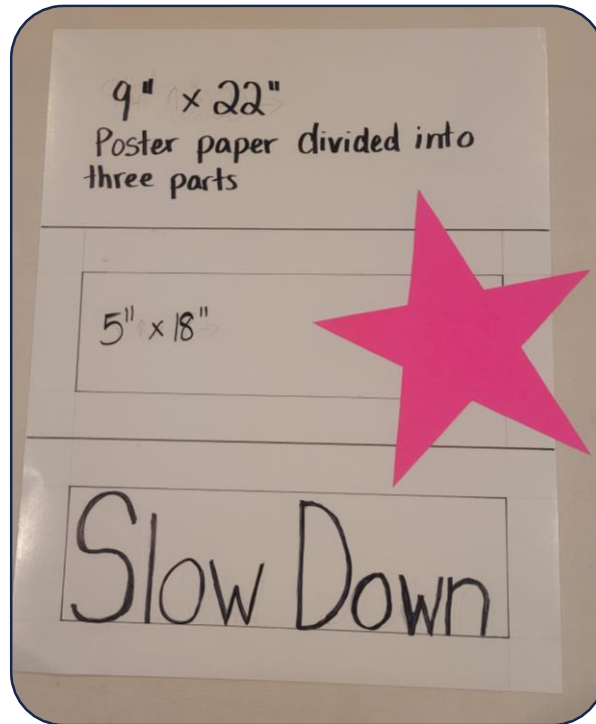 9" x 22"
Poster paper divided into
three parts
5" x 18"
Slow Down